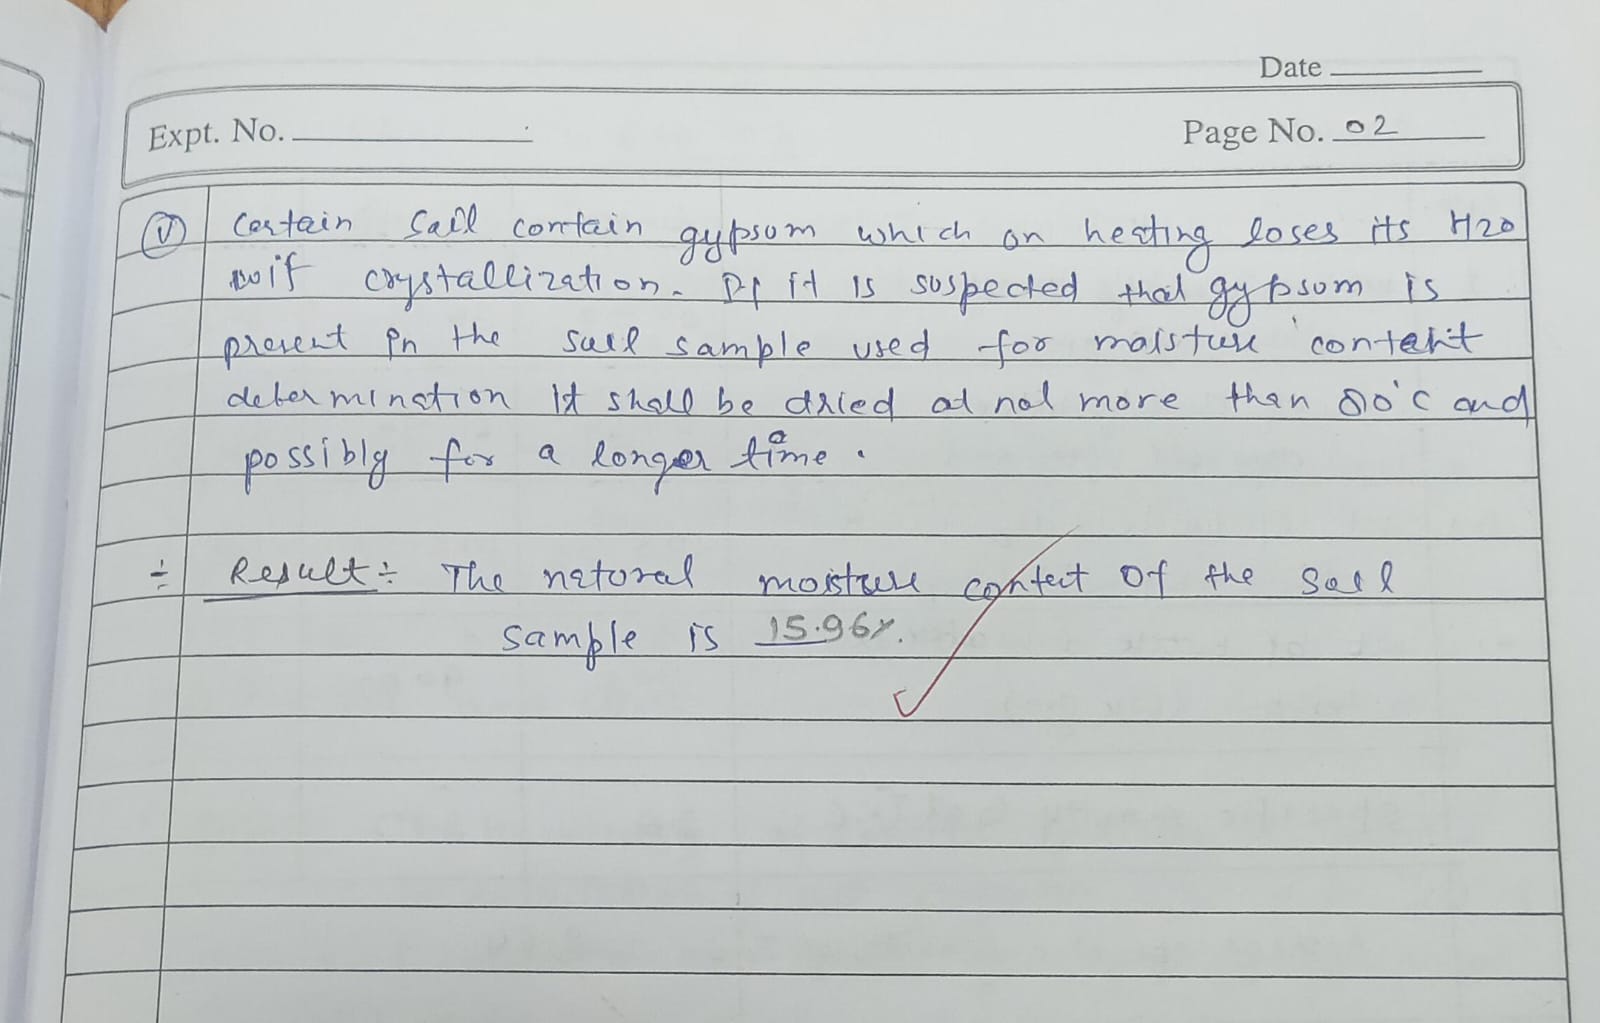 Date
Expt. No.
Page No. 02
(V) Certain Soil contain gypsum which on heating loses its H2O
crystallization. If it is suspected that gypsum is
present in the soil sample used for moisture content
determination It shall be dried at not more than 80°c and
possibly for a longer time.
÷ Result÷ The natural moisture contect of the Soil
sample is 15.96%.